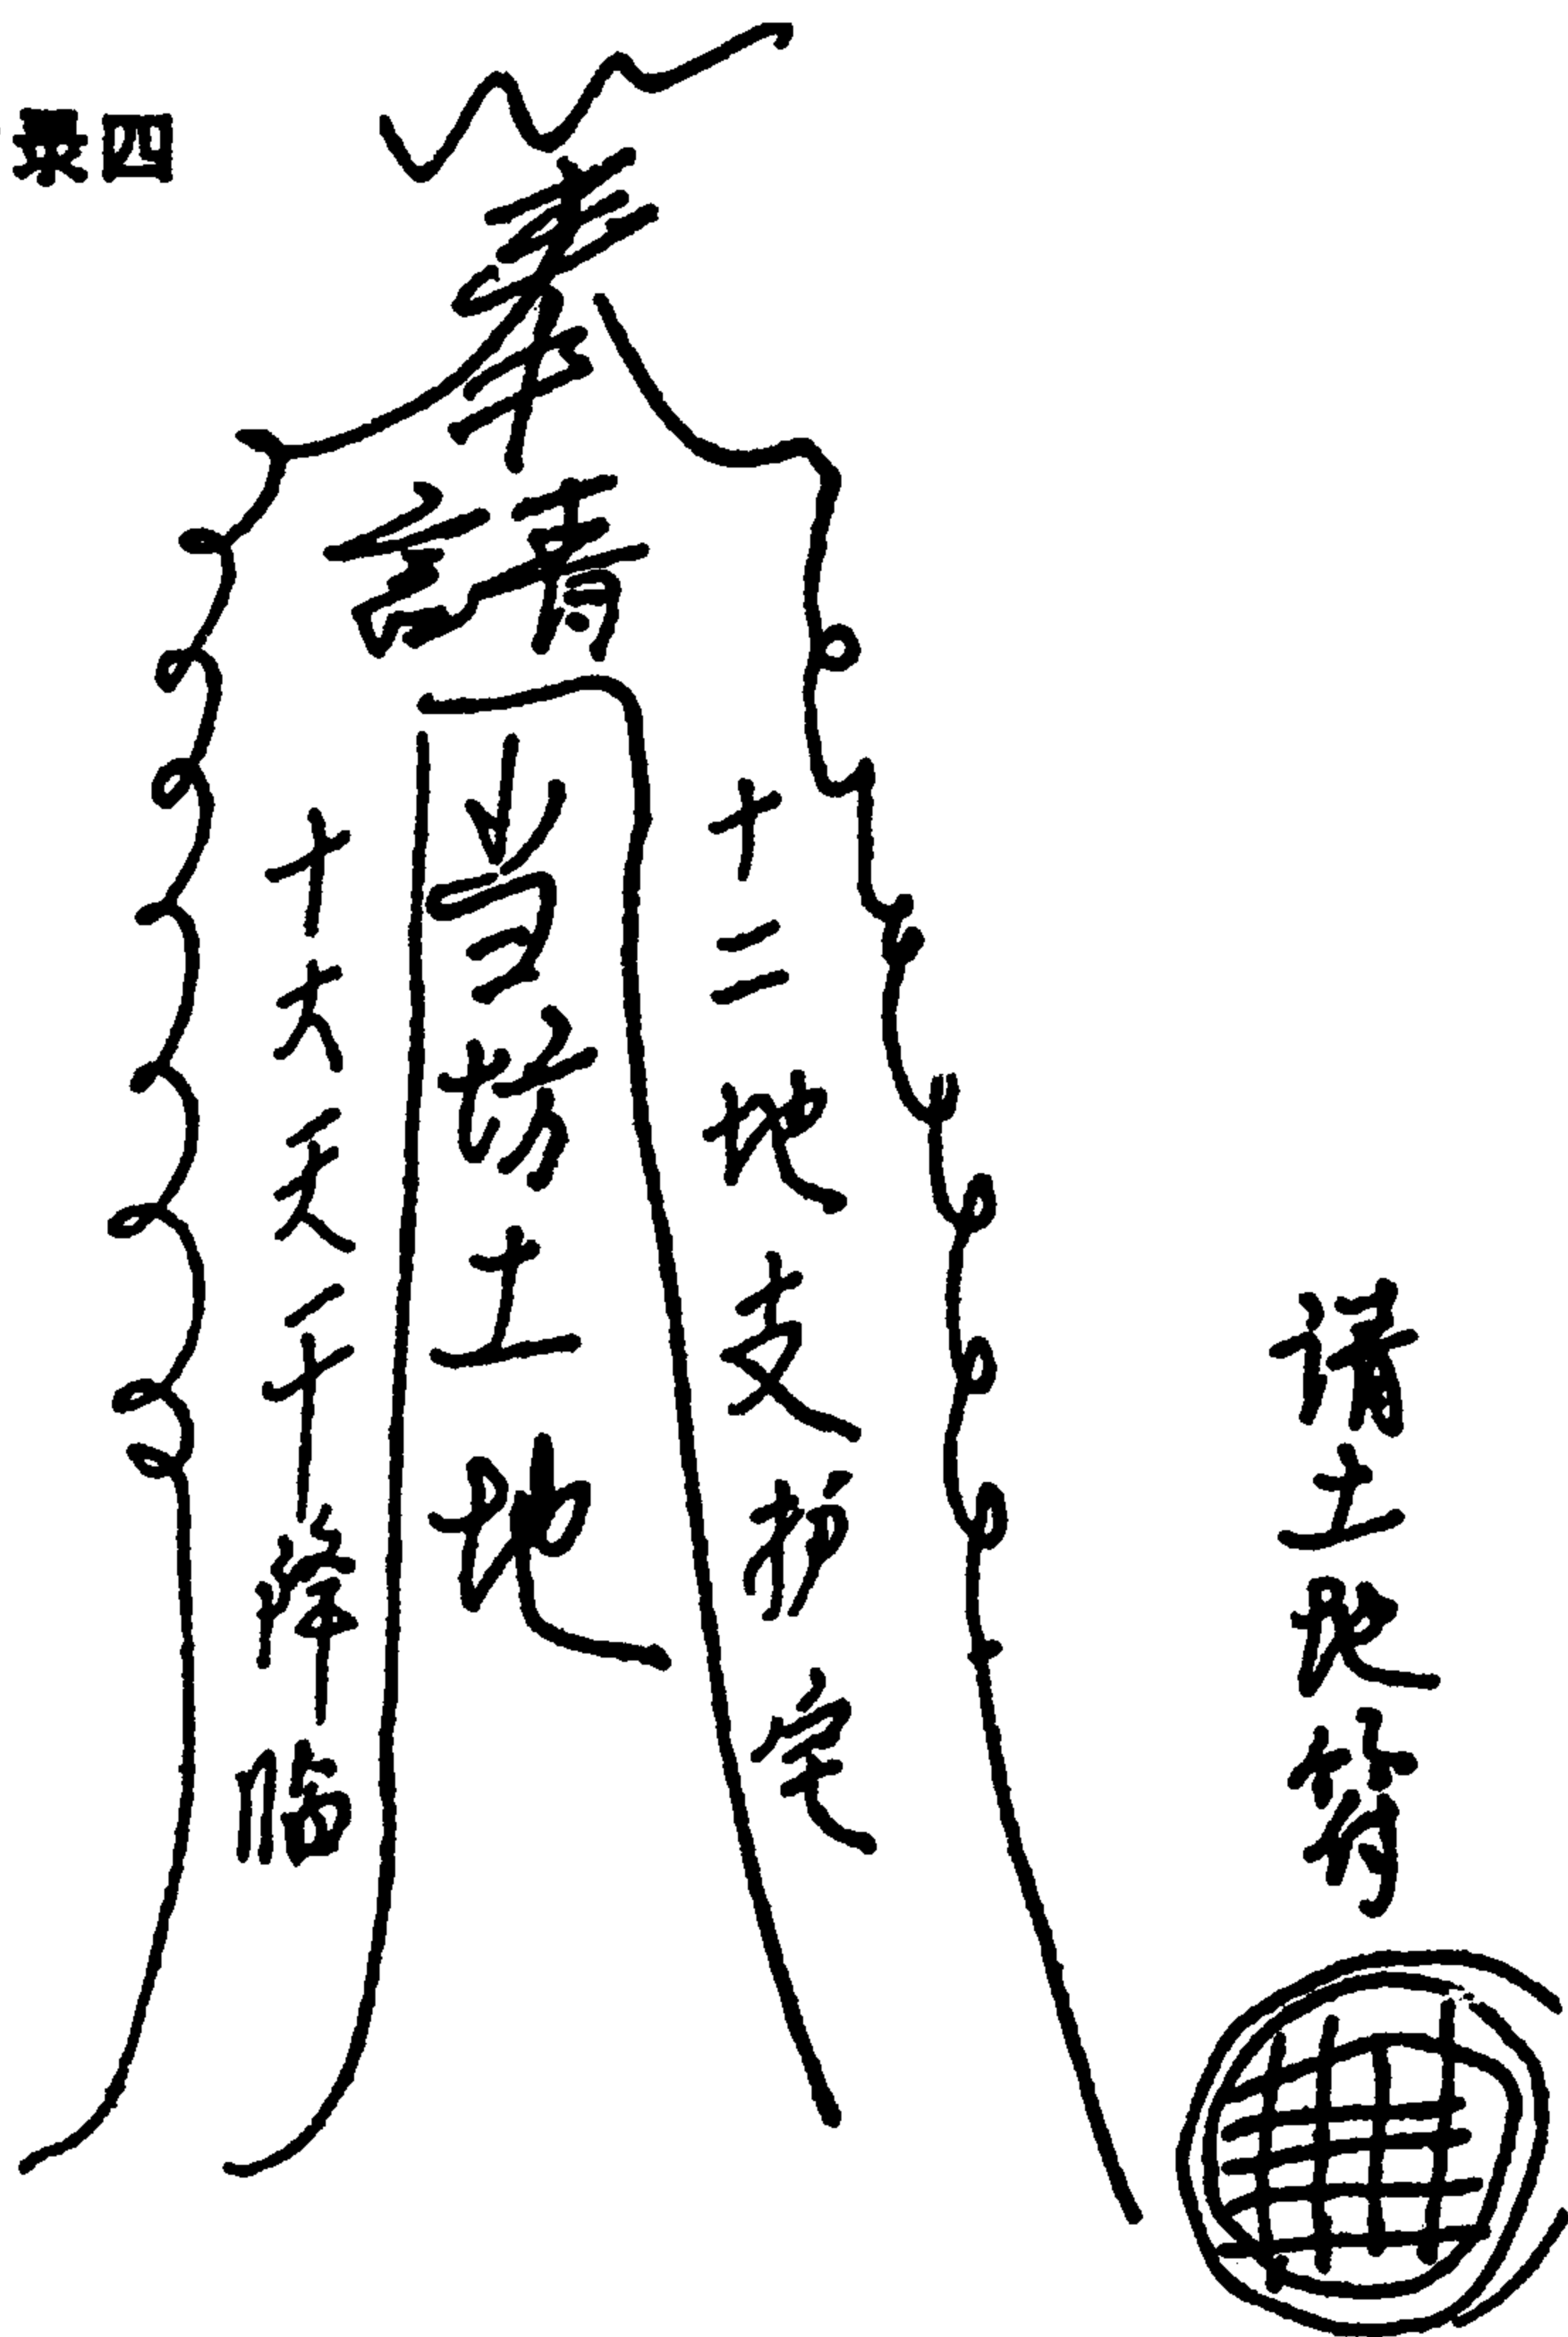 请土地符
奉請
十二地支护宅
当坊土地
十大天干降临
四